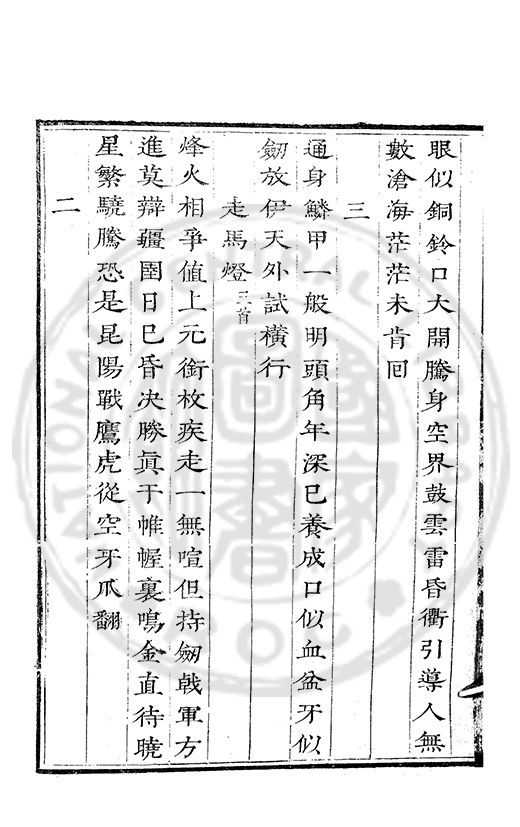 眼似銅鈴口大開騰身空界鼓雲雷昏衢引導人無
數滄海茫茫未肯回
三
通身鱗甲一般明頭角年深已養成口似血盆牙似
劒放伊天外試橫行
走馬燈三首
烽火相爭値上元銜枚疾走一無喧但持劒戟軍方
進莫辯疆圉日已昏决勝眞于帷幄裏鳴金直待曉
星繁驍騰恐是昆陽戰鷹虎從空牙爪翻
二